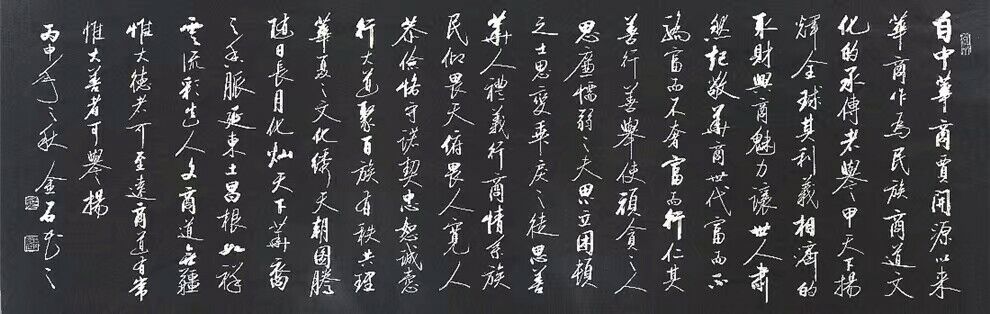 自中華商賈開源以来
華商作為民族商道文
化的承傳者譽甲天下揚
輝全球其利義相濟的
取財興商魅力讓世人肅
然起敬華商世代富而不
驕富而不奢富而行仁其
善行善舉使頑貪之人
思廉懦弱之夫思立困頓
之士思變乖戾之徒思善
華人禮義行商情系族
民仰畏天俯畏人寬人
恭儉恪守諾契忠恕誠意
行大道聚百族有秩共理
華夏之文化綉天朝国騰
随日長月化灿天下華喬
之脈延東土昌根如祥
雲流彩生人文商道無疆
惟大德者可至遠商道有常
惟大善者可舉揚
丙申年之秋金石書之